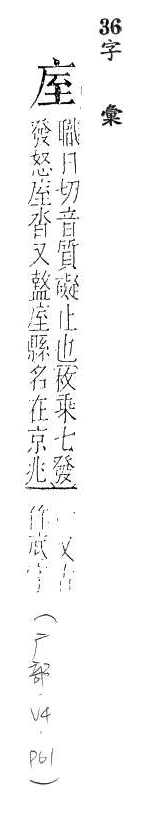 36
字彙
庢
職日切音質礙止也枚乘七發
發怒庢沓又盩庢縣名在京兆
又
俗
(广部.V4.P61)